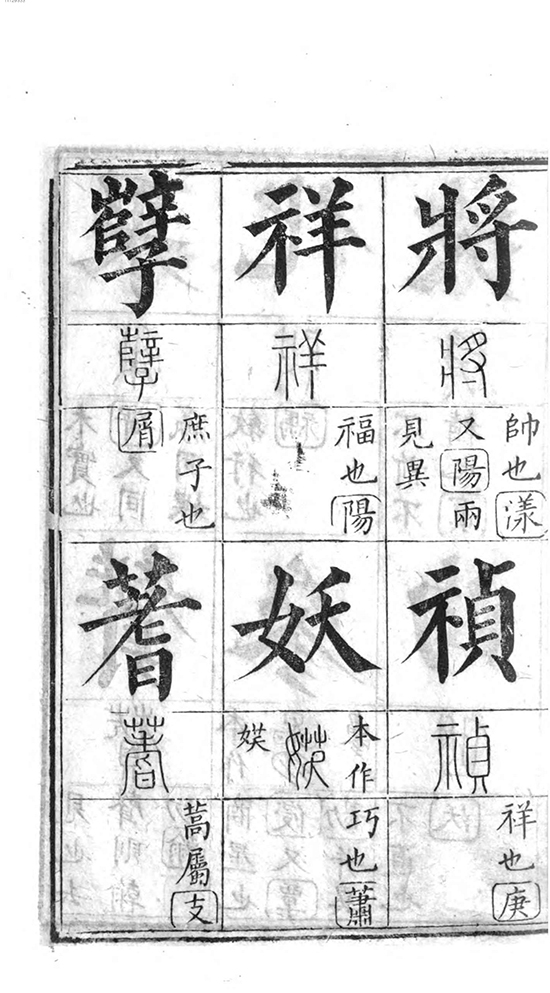 將
將
帥也漾
又陽兩
見異
禎
禎
祥也庚
祥
祥
福也陽
妖
本作
𡝩
𡝩
巧也蕭
孼
孼
庶子也
屑
蓍
蓍
蒿屬支